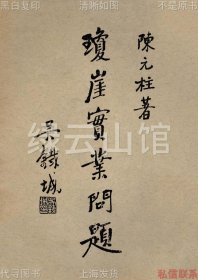 黑白复印
清晰如图
不是原书
陳元柱著
瓊崖實業問題
吴鐵城
缥云山馆
代寻图书
上海发货
私信联系